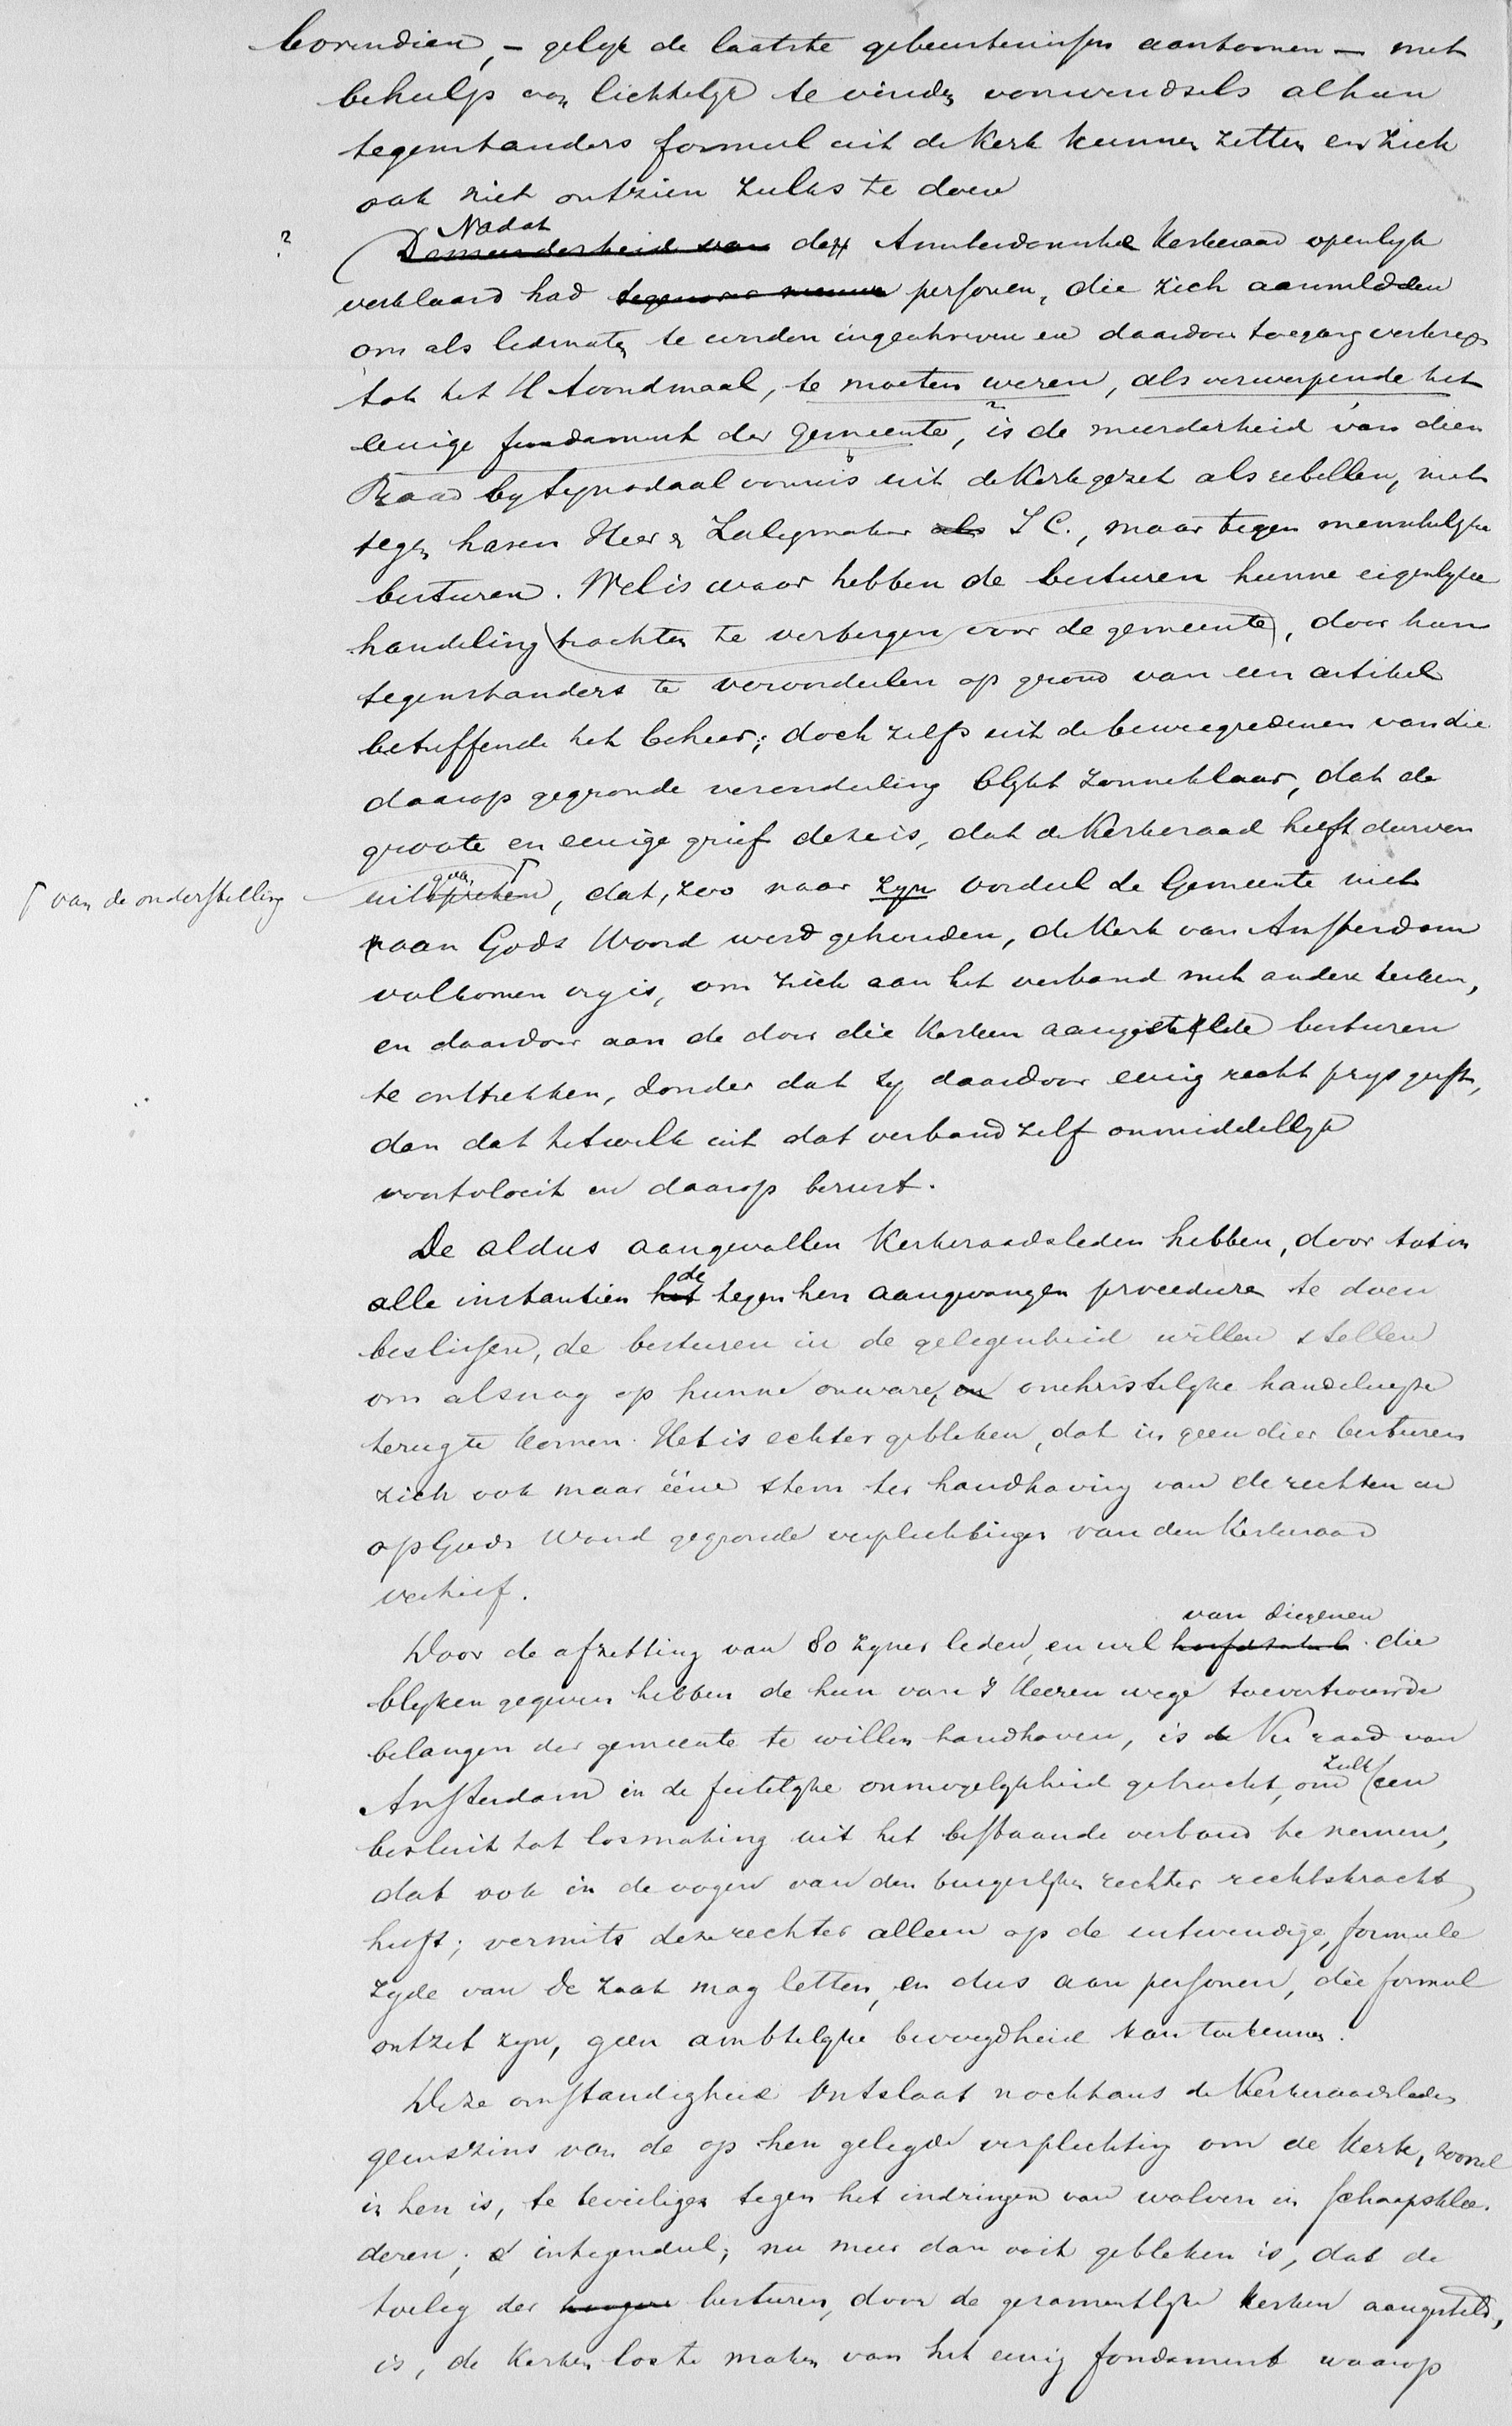 bovendien, – gelyk de laatste gebeurtenissen aantoonen – met
behulp van lichtelyk te vinden voorwendsels al hun
tegenstanders formeel uit de Kerk kunnen zetten en zich
ook niet ontzien zulks te doen
? Nadat
De meerderheid van de Amsterdamsche Kerkeraad openlyk
verklaard had tegenover nieuwe personen, die zich aanmeldden
om als ledmaten te worden ingeschreven en daardoor toegang verkregen
tot het H Avondmaal, te moeten weren, als verwerpende het
eenige fundament der Gemeente, is de meerderheid van dien
Raad by synodaal vonnis uit de Kerk gezet als rebellen, niet
tegen haren Heer & Zaligmaker als J C., maar tegen menschelyke
besturen. Wel is waar hebben de besturen hunne eigenlyke
handeling trachten te verbergen voor de gemeente, door hun
tegenstanders te veroordeelen op grond van een artikel
betreffende het beheer; doch zelfs uit de beweegredenen van die
daarop gegronde veroordeeling blykt zonneklaar, dat de
groote en eenige grief deze is, dat de Kerkeraad heeft durven
van de onderstelling
uit gaan
spreken, dat, zoo naar zyn oordeel de Gemeente niet
aan Gods Woord werd gehouden, de Kerk van Amsterdam
volkomen vry is, om zich aan het verband met andere kerken,
en daardoor aan de door die Kerken aangestelde besturen
te onttrekken, zonder dat zy daardoor eenig recht prys geeft,
dan dat hetwelk uit dat verband zelf onmiddellyk
voortvloeit en daarop berust.
De aldus aangevallen Kerkeraadsleden hebben, door tot in
de
alle instantien het tegen hen aangevangen procedure te doen
beslissen, de besturen in de gelegenheid willen stellen
om alsnog op hunne onware, en onchristelyke handelwyze
terug te komen. Het is echter gebleken, dat in geen dier besturen
zich ook maar ééne stem ter handhaving van de rechten en
op Gods Woord gegronde verplichtingen van den Kerkeraad
verhief.
van diegenen
Door de afzetting van 80 zyner leden, en wel hoofdzakel. die
blyken gegeven hebben de hun van 's Heeren wege toevertrouwde
belangen der gemeente te willen handhaven, is de Ke raad van
zulk
Amsterdam in de feitelyke onmogelykheid gebracht, om een
besluit tot losmaking uit het bestaande verband te nemen,
dat ook in de oogen van den burgerlyken rechter rechtskracht
heeft; vermits deze rechter alleen op de uitwendige, formeele
zyde van de zaak mag letten, en dus aan personen, die formeel
ontzet zyn, geen ambtelyke bevoegdheid kan toekennen.
Deze omstandigheid ontslaat nochtans de Kerkeraadsleden
geenszins van de op hen gelegde verplichting om de Kerk, zooveel
in hen is, te beveiligen tegen het indringen van wolven in schaapsklee-
deren; integendeel; nu meer dan ooit gebleken is, dat de
toeleg der hoogere besturen, door de gezamentlyke kerken aangesteld,
is, de Kerken los te maken van het eenig fondament waarop